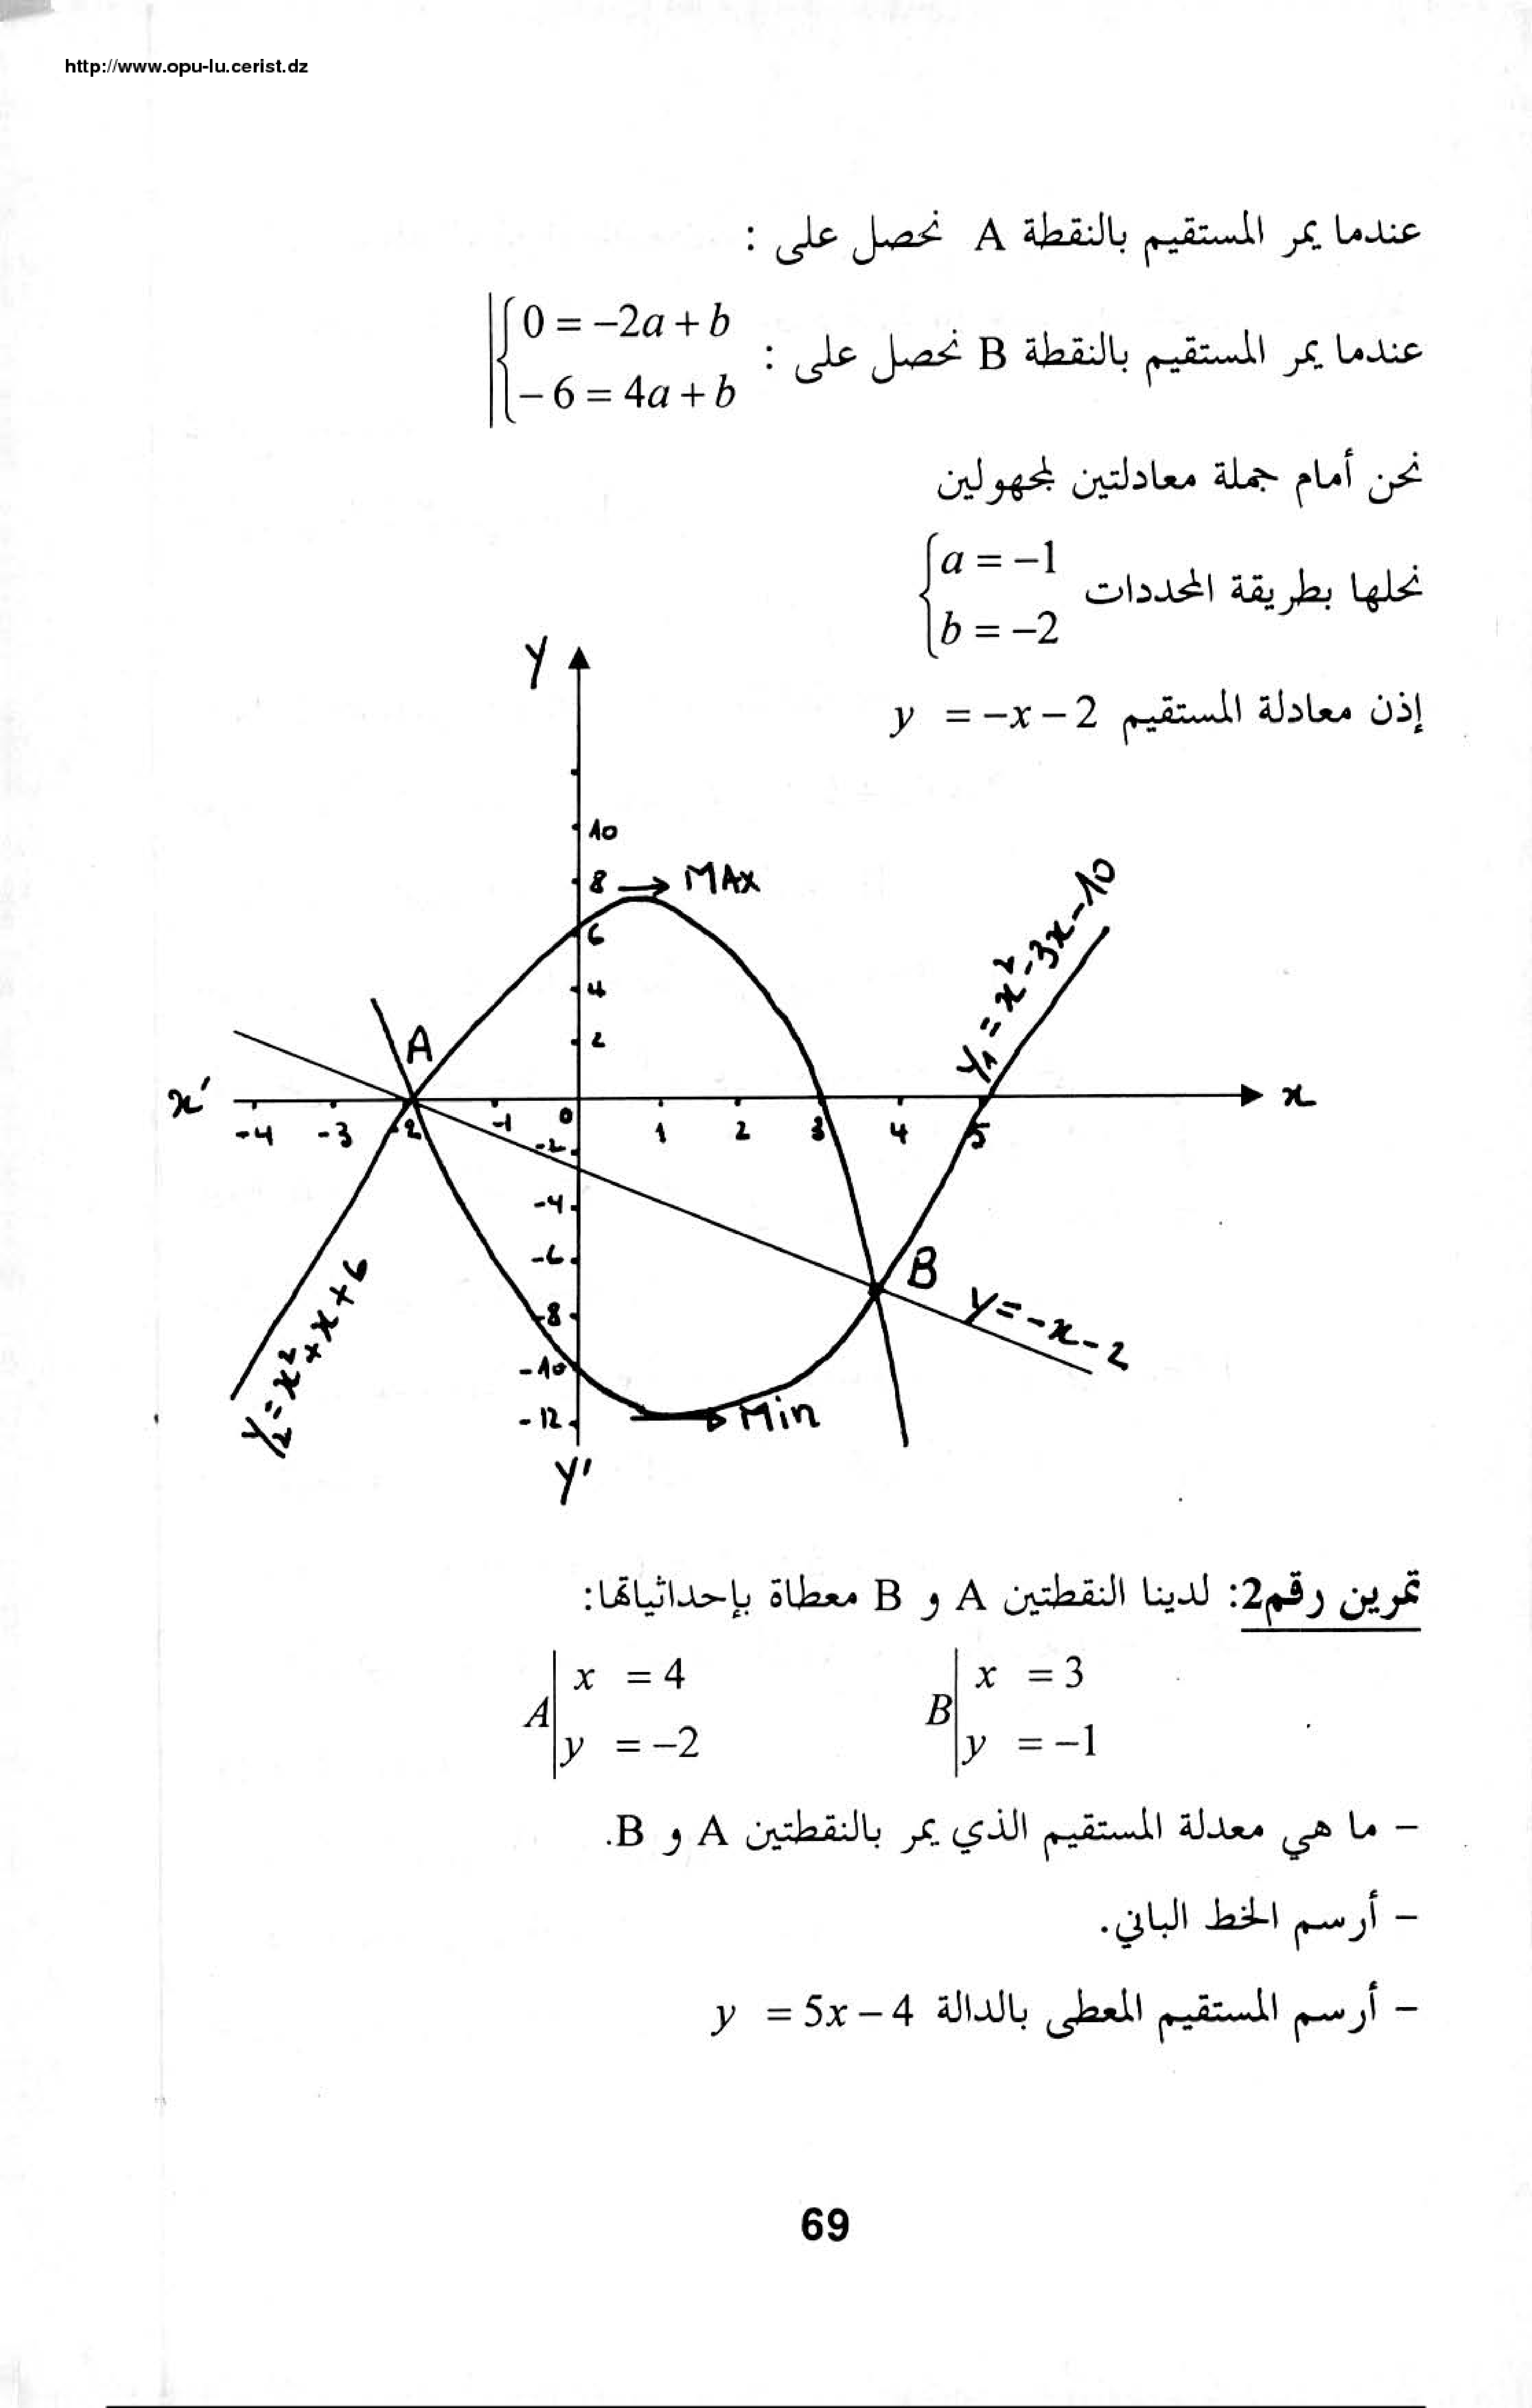 http://www.opu-lu.cerist.dz
عندما يمر المستقيم بالنقطة A نحصل على :
عندما يمر المستقيم بالنقطة B نحصل على :
0 = −2a + b
− 6 = 4a + b
نحن أمام جملة معادلتين لمجهولين
نحلها بطريقة المحددات
a = −1
b = −2
إذن معادلة المستقيم y = −x − 2
y
10
8 → MAX
6
4
2
y₁ = x² - 3x - 10
A
x' -4 -3 -2 -1 0 1 2 3 4 5 x
-2
-4
-6
B
-8
y = -x - 2
-10
-12
Min
y₂ = x² + x + 6
y'
تمرين رقم2: لدينا النقطتين A و B معطاة بإحداثياتها:
A x = 4 B x = 3
y = −2 y = −1
– ما هي معدلة المستقيم الذي يمر بالنقطتين A و B.
– أرسم الخط الباني.
– أرسم المستقيم المعطى بالدالة y = 5x − 4
69